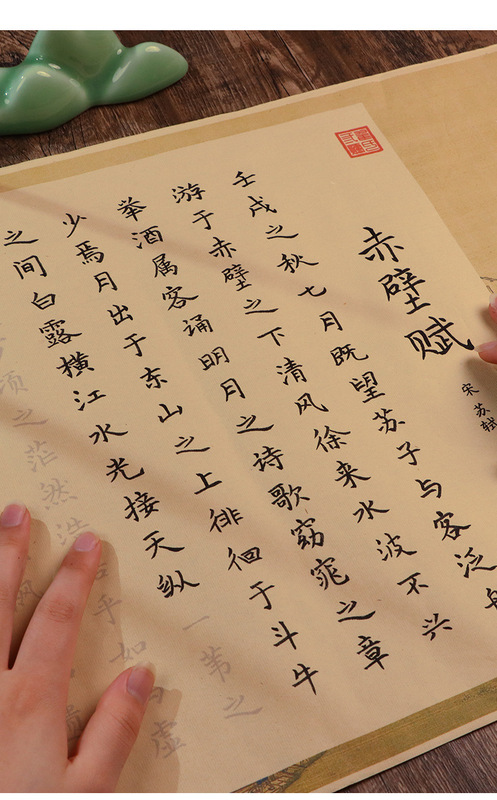 赤壁赋
宋苏轼
壬戌之秋七月既望苏子与客泛舟
游于赤壁之下清风徐来水波不兴
举酒属客诵明月之诗歌窈窕之章
少焉月出于东山之上徘徊于斗牛
之间白露横江水光接天纵一苇之
顷之茫然浩乎如虚